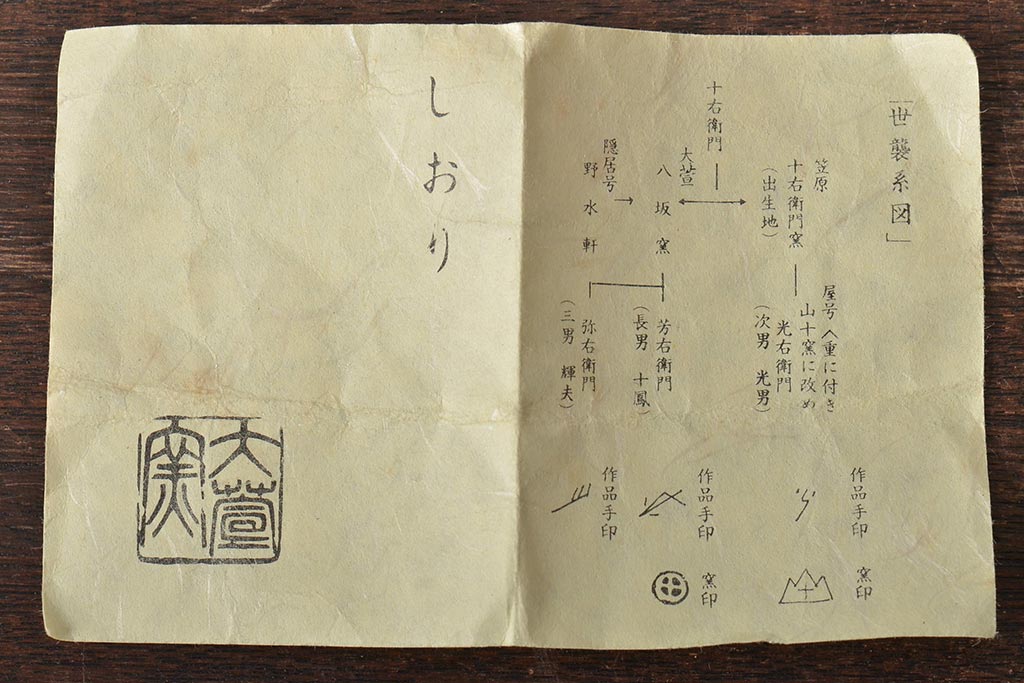 「世襲系図」
笠原
十右衛門窯
（出生地）
屋号八重に付き
山十窯に改め
光右衛門
（次男 光男）
作品手印
窯印
十右衛門
大萱
八坂窯
芳右衛門
（長男 十鳳）
作品手印
窯印
隠居号
野水軒
弥右衛門
（三男 輝夫）
作品手印
しおり
大萱
窯